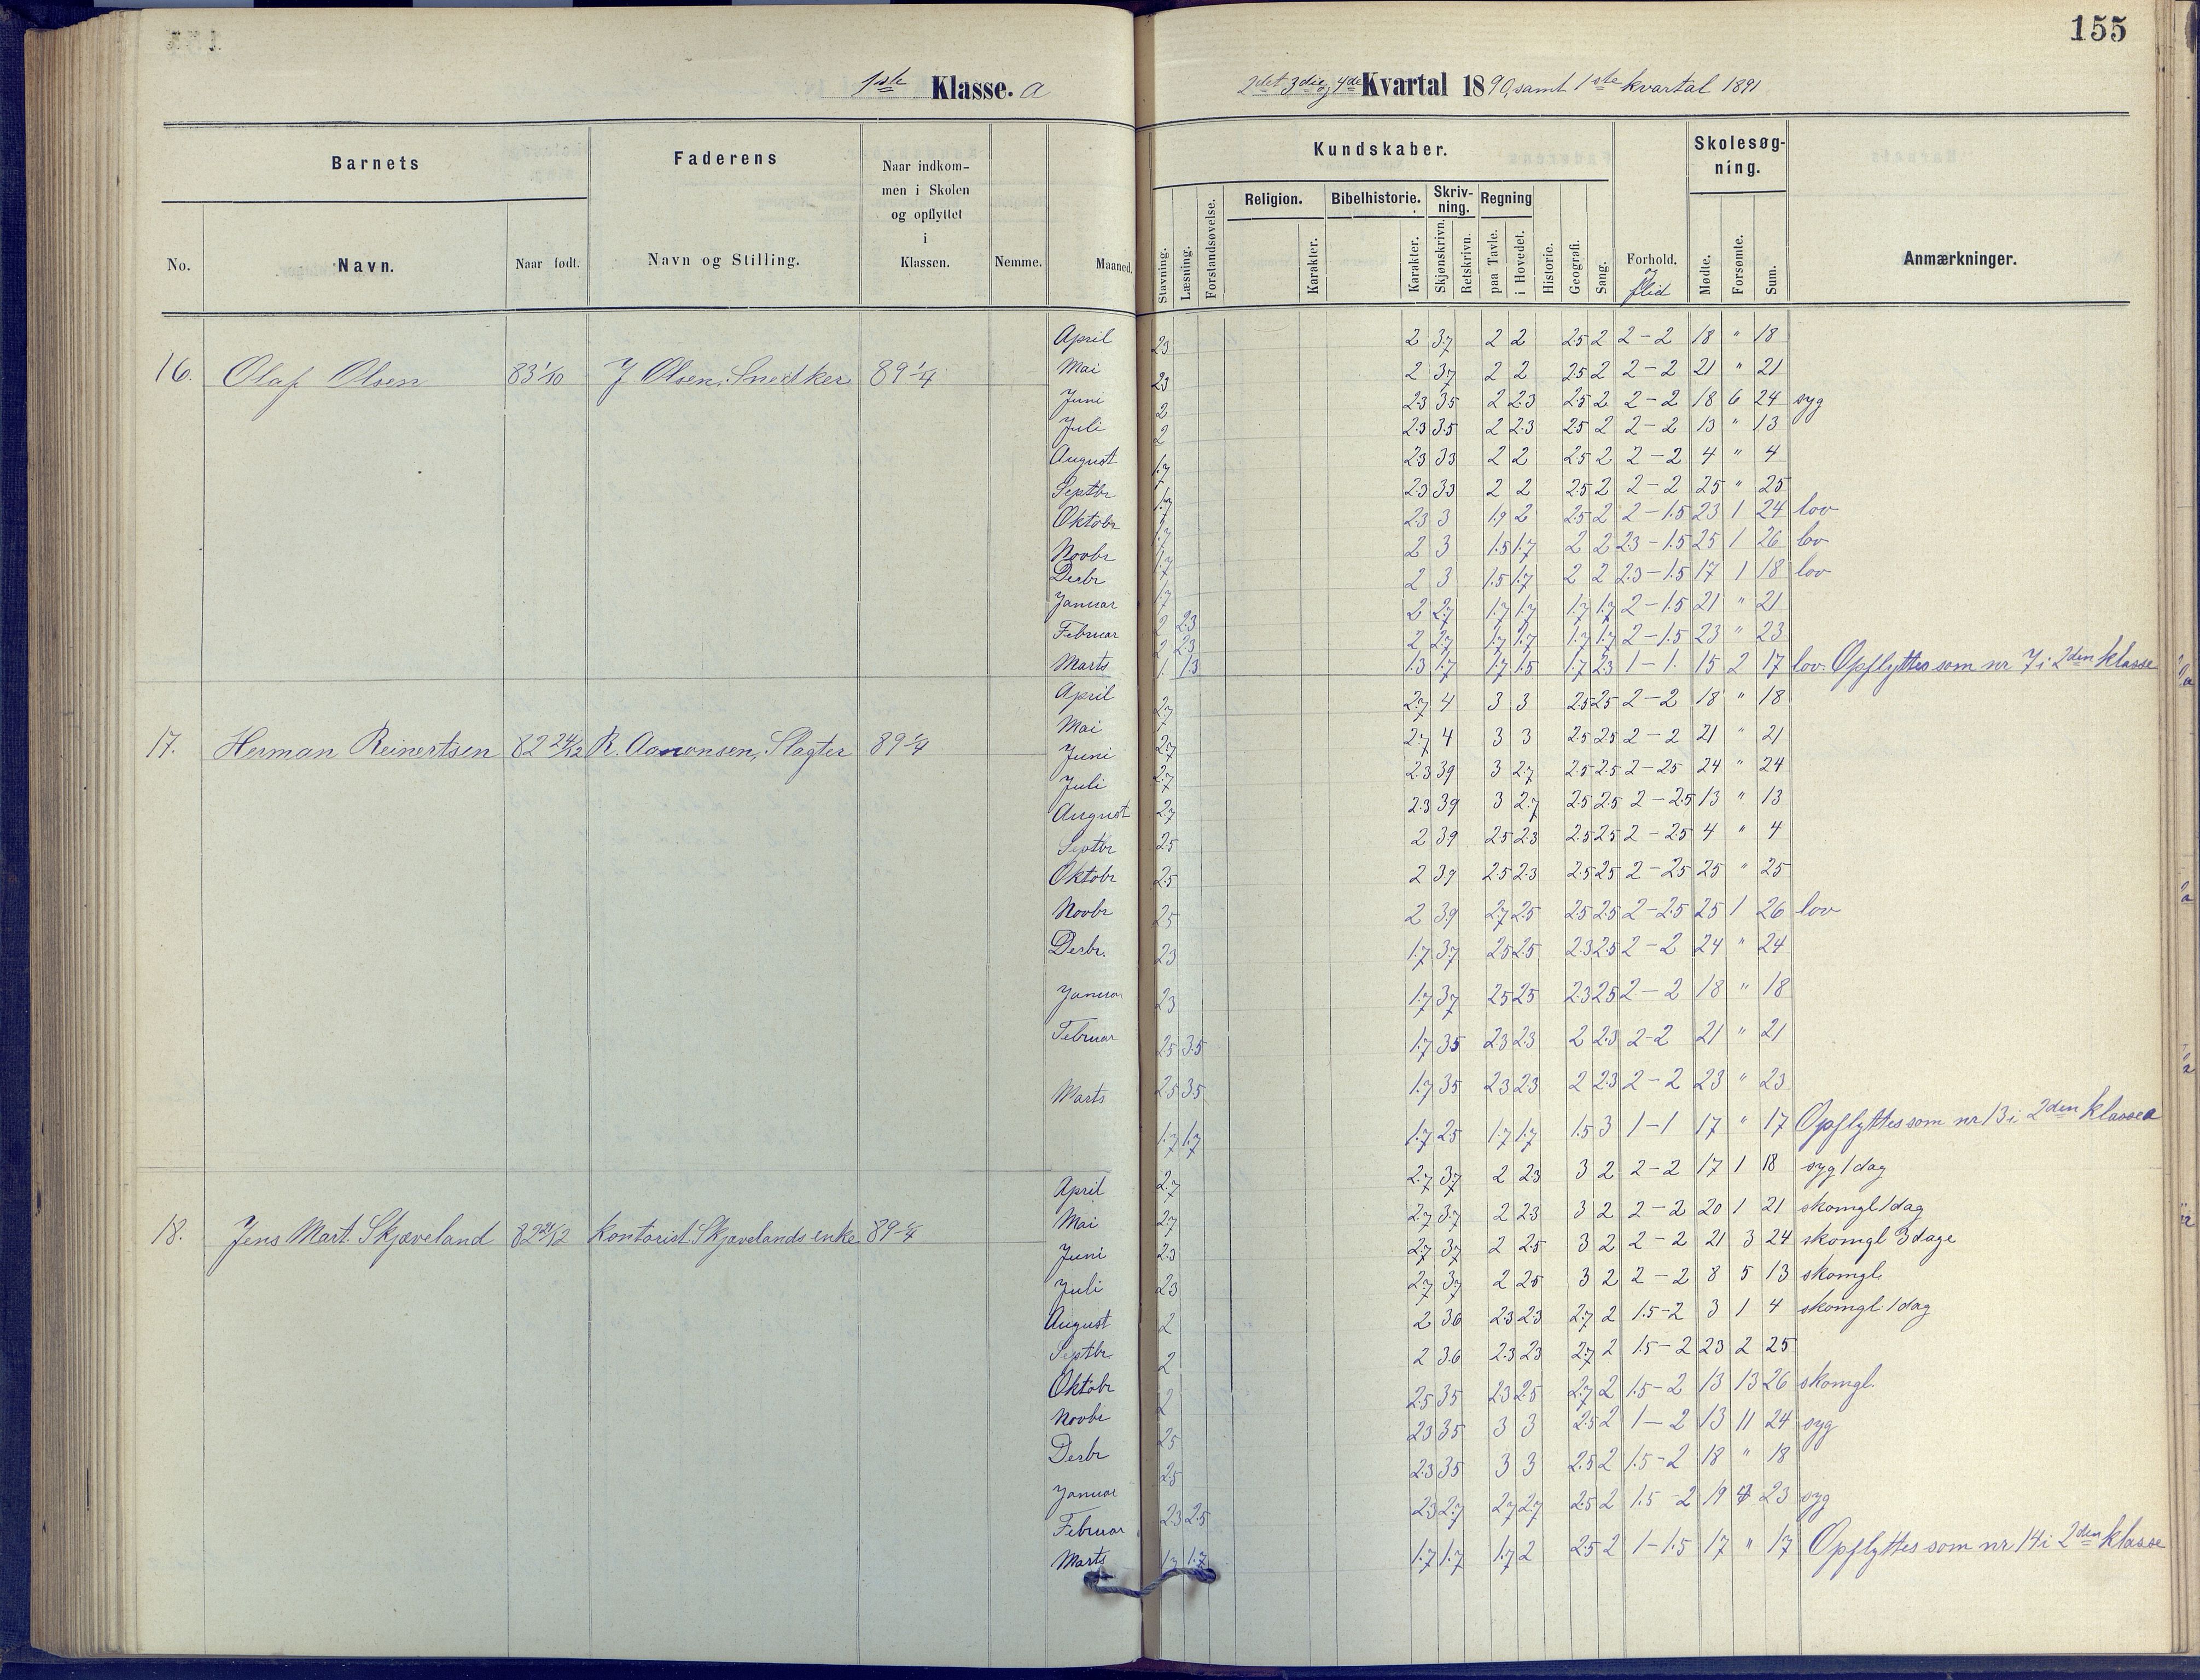 155
1ste Klasse. a
2det 3die og 4de Kvartal 1890, samt 1ste kvartal 1891
Barnets
Faderens
Naar indkommen i Skolen og opflyttet i Klassen.
Kundskaber.
Skolesøgning.
No.
Navn.
Naar født.
Navn og Stilling.
Nemme.
Maaned.
Stavning.
Læsning.
Forstandsøvelse.
Religion.
Karakter.
Bibelhistorie.
Karakter.
Skrivning.
Skjønskrivn.
Retskrivn.
Regning
paa Tavle.
i Hovedet.
Historie.
Geografi.
Sang.
Forhold.
og flid
Mødte.
Forsømte.
Sum.
Anmærkninger.
16. Olaf Olsen 83 1/10 J Olsen, Snedker 89 1/4
April 23 2 3.7 2 2 25 2 2-2 18 " 18
Mai 23 2 37 2 2 25 2 2-2 21 " 21
Juni 2 23 35 2 2.3 25 2 2-2 18 6 24 syg
Juli 2 2.3 3.5 2 2.3 25 2 2-2 13 " 13
August 1.7 23 33 2 2 25 2 2-2 4 " 4
Septbr 1.7 23 33 2 2 25 2 2-2 25 " 25
Oktobr 1.7 23 3 1.9 2 25 2 2-1.5 23 1 24 lov
Novbr 1.7 2 3 1.5 1.7 2 2 23-1.5 25 1 26 lov
Desbr 1.7 2 3 1.5 1.7 2 2 2.3-1.5 17 1 18 lov
Januar 2 23 2 2.7 1.7 1.7 1.7 1.7 2-1.5 21 " 21
Februar 2 23 2 27 1.7 1.7 1.7 1.7 2-1.5 23 " 23
Marts 1. 1.3 1.3 1.7 1.7 1.5 1.7 23 1-1. 15 2 17 lov. Opflyttes som nr 7 i 2den klasse
17. Herman Reinertsen 82 24/12 R. Aanonsen, Slagter 89 1/4
April 2.7 2.7 4 3 3 25 25 2-2 18 " 18
Mai 2.7 2.7 4 3 3 25 25 2-2 21 " 21
Juni 2.7 2.3 39 3 2.7 2.5 2.5 2-25 24 " 24
Juli 2.7 2.3 39 3 2.7 25 2.5 2-2.5 13 " 13
August 25 2 39 25 23 2.5 25 2-25 4 " 4
Septbr 25 2 39 2.5 23 25 25 2-25 25 " 25
Oktobr 25 2 39 27 25 25 2.5 2-2.5 25 1 26 lov
Novbr 23 1.7 37 25 25 2.3 2.5 2-2 24 " 24
Desbr. 23 1.7 37 25 25 23 25 2-2 18 " 18
Januar 25 35 1.7 35 23 23 2 23 2-2 21 " 21
Februar 25 35 1.7 35 23 23 2 23 2-2 23 " 23
Marts 1.7 1.7 1.7 25 1.7 1.7 1.5 3 1-1 17 " 17 Opflyttes som nr 13 i 2den klasse a
18. Jens Mart. Skjæveland 82 21/12 Kontorist Skjævelands enke 89 1/4
April 2.7 2.7 3.7 2 23 3 2 2-2 17 1 18 syg 1 dag
Mai 27 2.7 37 2 23 3 2 2-2 20 1 21 skomgl 1 dag
Juni 23 27 37 2 25 3 2 2-2 21 3 24 skomgl 3 dage
Juli 23 27 37 2 25 3 2 2-2 8 5 13 skomgl.
August 2 2 36 23 23 27 2 1.5-2 3 1 4 skomgl. 1 dag
Septbr. 2 2 3.6 2.3 23 27 2 1.5-2 23 2 25
Oktobr 2 25 35 23 25 27 2 1.5-2 13 13 26 skomgl.
Novbr 25 23 35 3 3 25 2 1-2 13 11 24 syg
Desbr 25 23 35 3 3 25 2 1.5-2 18 " 18
Januar
Februar 23 25 23 27 27 27 25 2 1.5-2 19 4 23 syg
Marts 1.7 1.7 1.7 1.7 1.7 2 25 2 1-1.5 17 " 17 Opflyttes som nr 14 i 2den klasse